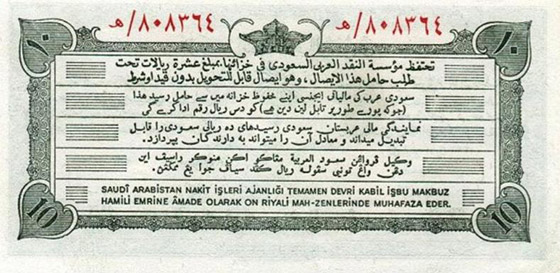 ه/٨٠٨٣٦٤ ه/٨٠٨٣٦٤
١٠ ١٠
تحتفظ مؤسسة النقد العربي السعودي في خزائنها بمبلغ عشرة ريالات تحت
طلب حامل هذا الايصال ، وهو ايصال قابل للتحويل بدون قيد أو شرط
سعودی عرب کی مالیاتی ایجنسی اپنے محفوظ خزانہ میں سے حامل رسید ھذا
(جو کہ پورے طور پر قابل لین دین ہے) کو دس ریال رقم ادا کرے گی
نمایندگی مالی عربستان سعودی رسیدهای ده ریالی سعودی را قابل
تبدیل میداند و معادل آن را میتواند به دارنده گان بپردازد.
وكيل سعود العربية اين
دهن ريال
SAUDİ ARABİSTAN NAKİT İŞLERİ AJANLIĞI TEMAMEN DEVRİ KABİL İŞBU MAKBUZ
HAMİLİ EMRİNE ÂMADE OLARAK ON RİYALİ MAH-ZENLERİNDE MUHAFAZA EDER.
10 10